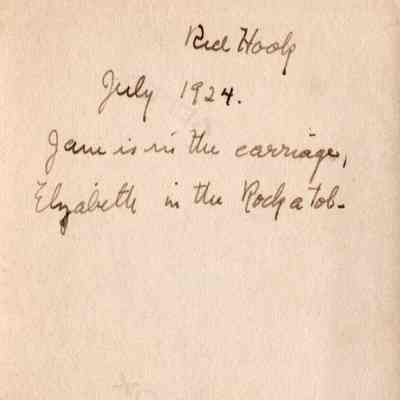 Red Hook
July 1924.
Jane is in the carriage,
Elizabeth in the Rock a Tob-